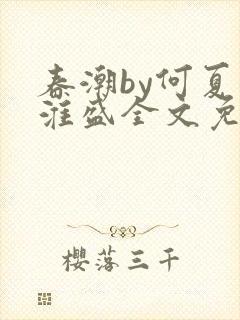 春潮by何夏
淮盛全文免
樱落三千